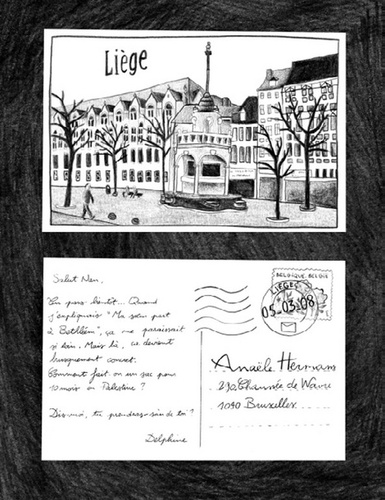 Liège
Salut Nan,
Tu pars bientôt... Quand
j'expliquais "Ma sœur part
à Bethléem", ça me paraissait
si loin. Mais là, ça devient
brusquement concret.
Comment fait-on un sac pour
10 mois en Palestine ?
Dis-moi, tu prendras soin de toi ?
Delphine
BELGIQUE-BELGIË
LIEGE
05-03-08
Anaële Hermans
210, Chaussée de Wavre
1040 Bruxelles